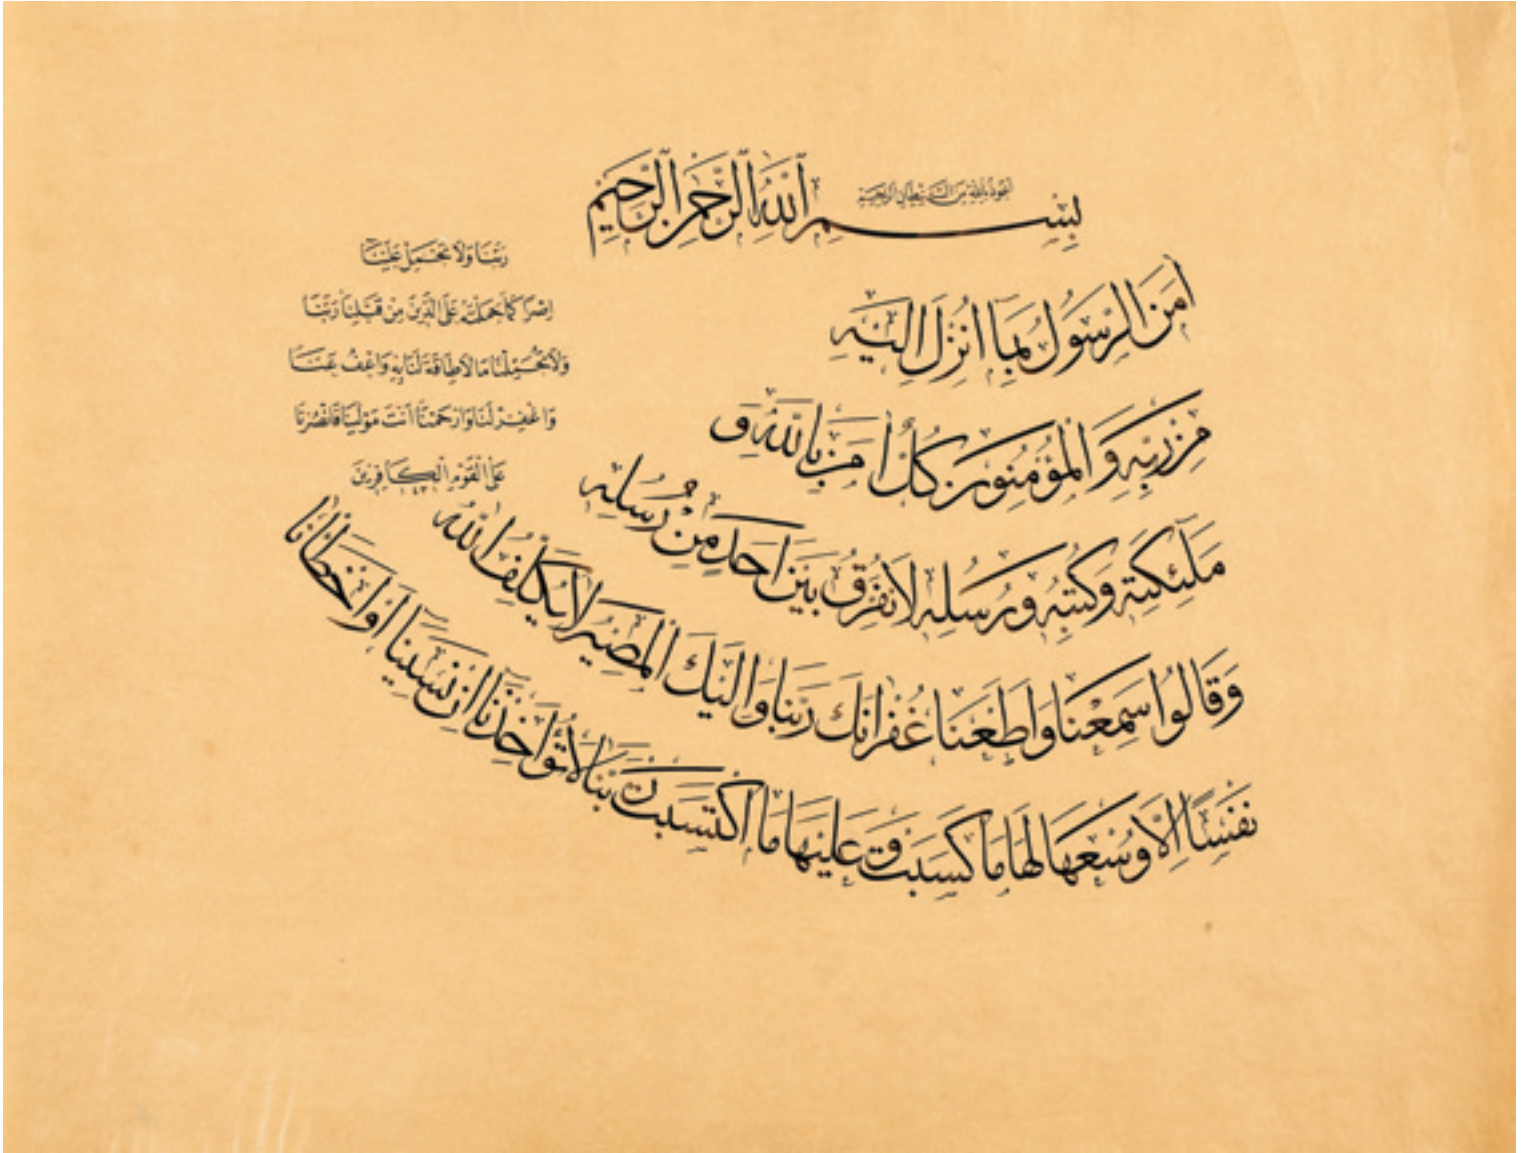 اعوذ بالله من الشيطان الرجيم
بِسْمِ اللهِ الرَّحْمنِ الرَّحِيمِ
امَنَ الرَّسُولُ بِمَا اُنْزِلَ اِلَيْهِ
مِنْ رَبِّهِ وَالْمُؤْمِنُونَ كُلٌّ امَنَ بِاللهِ وَ
مَلئِكَتِهِ وَكُتُبِهِ وَرُسُلِهِ لَا نُفَرِّقُ بَيْنَ اَحَدٍ مِنْ رُسُلِهِ
وَقَالُوا سَمِعْنَا وَاَطَعْنَا غُفْرَانَكَ رَبَّنَا وَاِلَيْكَ الْمَصِيرُ لَا يُكَلِّفُ اللهُ
نَفْسًا اِلَّا وُسْعَهَا لَهَا مَا كَسَبَتْ وَعَلَيْهَا مَا اكْتَسَبَتْ رَبَّنَا لَا تُؤَاخِذْنَا اِنْ نَسِينَا اَوْ اَخْطَأْنَا
رَبَّنَا وَلَا تَحْمِلْ عَلَيْنَا
اِصْرًا كَمَا حَمَلْتَهُ عَلَى الَّذِينَ مِنْ قَبْلِنَا رَبَّنَا
وَلَا تُحَمِّلْنَا مَا لَا طَاقَةَ لَنَا بِهِ وَاعْفُ عَنَّا
وَاغْفِرْ لَنَا وَارْحَمْنَا اَنْتَ مَوْلينَا فَانْصُرْنَا
عَلَى الْقَوْمِ الْكَافِرِينَ